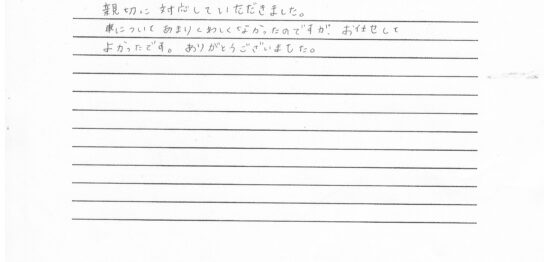 親切に対応していただきました。
車についてあまりくわしくなかったのですが、お任せして
よかったです。ありがとうございました。